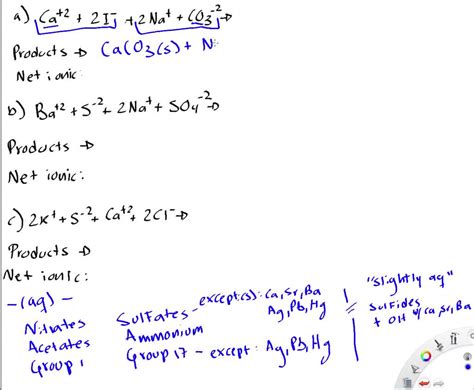 a) Ca⁺² + 2I⁻ + 2Na⁺ + CO₃⁻² →
Products → CaCO₃(s) + N
Net ionic:
b) Ba⁺² + S⁻² + 2Na⁺ + SO₄⁻² →
Products →
Net ionic:
c) 2K⁺ + S⁻² + Ca⁺² + 2Cl⁻ →
Products →
Net ionic:
-(aq)-
Nitrates
Acetates
Group 1
Sulfates - except(s): Ca, Sr, Ba
Ag, Pb, Hg
Ammonium
Group 17 - except: Ag, Pb, Hg
"slightly aq"
sulfides
+ OH w/ Ca, Sr, Ba